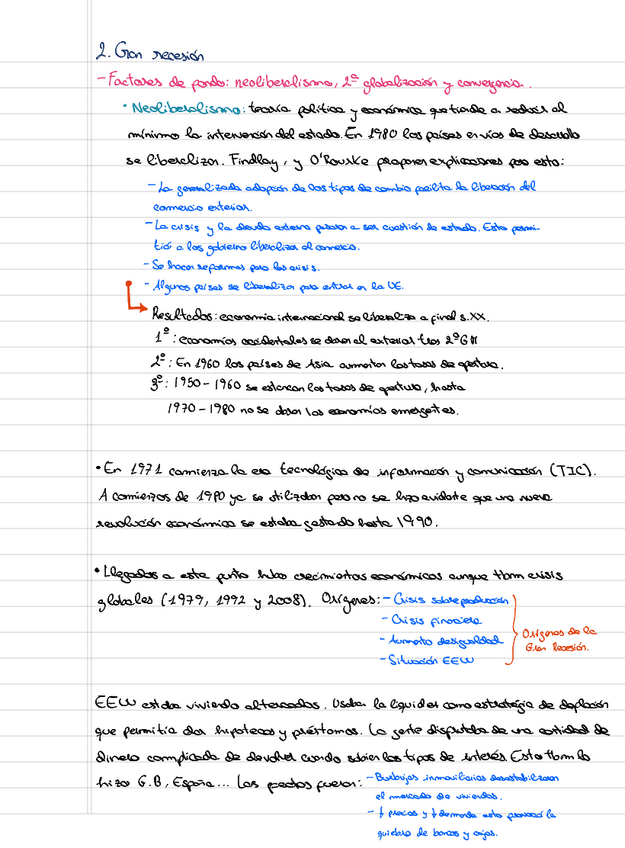 2. Gran recesión
- Factores de fondo: neoliberalismo, 2ª globalización y convergencia.
• Neoliberalismo: teoría política y económica que tiende a reducir al
mínimo la intervención del estado. En 1980 los países en vías de desarrollo
se liberalizan. Findlay, y O'Rourke proponen explicaciones para esto:
- La generalizada adopción de los tipos de cambio facilita la liberación del
comercio exterior.
- La crisis y la deuda externa pasaron a ser cuestión de estado. Esto permi-
tió a los gobierno liberalizar el comercio.
- Se hacen reformas para las crisis.
- Algunos países se liberalizan para entrar en la UE.
Resultados: economía internacional se liberaliza a final s.XX.
1º: economías occidentales se daron al exterior tras 2ºGM
2º: En 1960 los países de Asia aumentan las tasas de apertura.
3º: 1950-1960 se estancan las tasas de apertura, hasta
1970-1980 no se daron las economías emergentes.
• En 1971 comienza la era tecnológica de información y comunicación (TIC).
A comienzos de 1980 ya se utilizaban pero no se hizo evidente que una nueva
revolución económica se estaba gestando hasta 1990.
• Llegados a este punto hubo crecimientos económicos aunque tbm crisis
globales (1979, 1992 y 2008). Orígenes: - Crisis sobreproducción
- Crisis financiera
- Aumento desigualdad
- Situación EEUU
Orígenes de la
Gran Recesión.
EEUU estaba viviendo altercados. Usaban la liquidez como estrategia de deflación
que permitía dar hipotecas y préstamos. La gente disfrutaba de una cantidad de
dinero complicada de devolver cuando suben los tipos de interés. Esto tbm lo
hizo G.B, España... Los efectos fueron: - Burbujas inmobiliarias desestabilizaron
el mercado de viviendas.
- ↓ precios y ↓ demanda esto provocó la
quiebra de bancos y cajas.